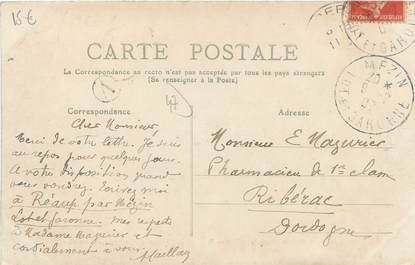 15€
CARTE POSTALE
La Correspondance au recto n'est pas acceptée par tous les pays étrangers
(Se renseigner à la Poste)
Correspondance
Adresse
47
MEZIN
LOT-ET-GARONNE
Cher Monsieur
Merci de votre lettre. Je suis
au repos pour quelques jours.
A votre disposition quand
vous voudrez. Ecrivez moi
à Réaup par Mézin
Lot et Garonne. Mes respects
à Madame Magurier et
cordialement à vous.
Monsieur E Magurier
Pharmacien de 1re classe
Ribérac
Dordogne